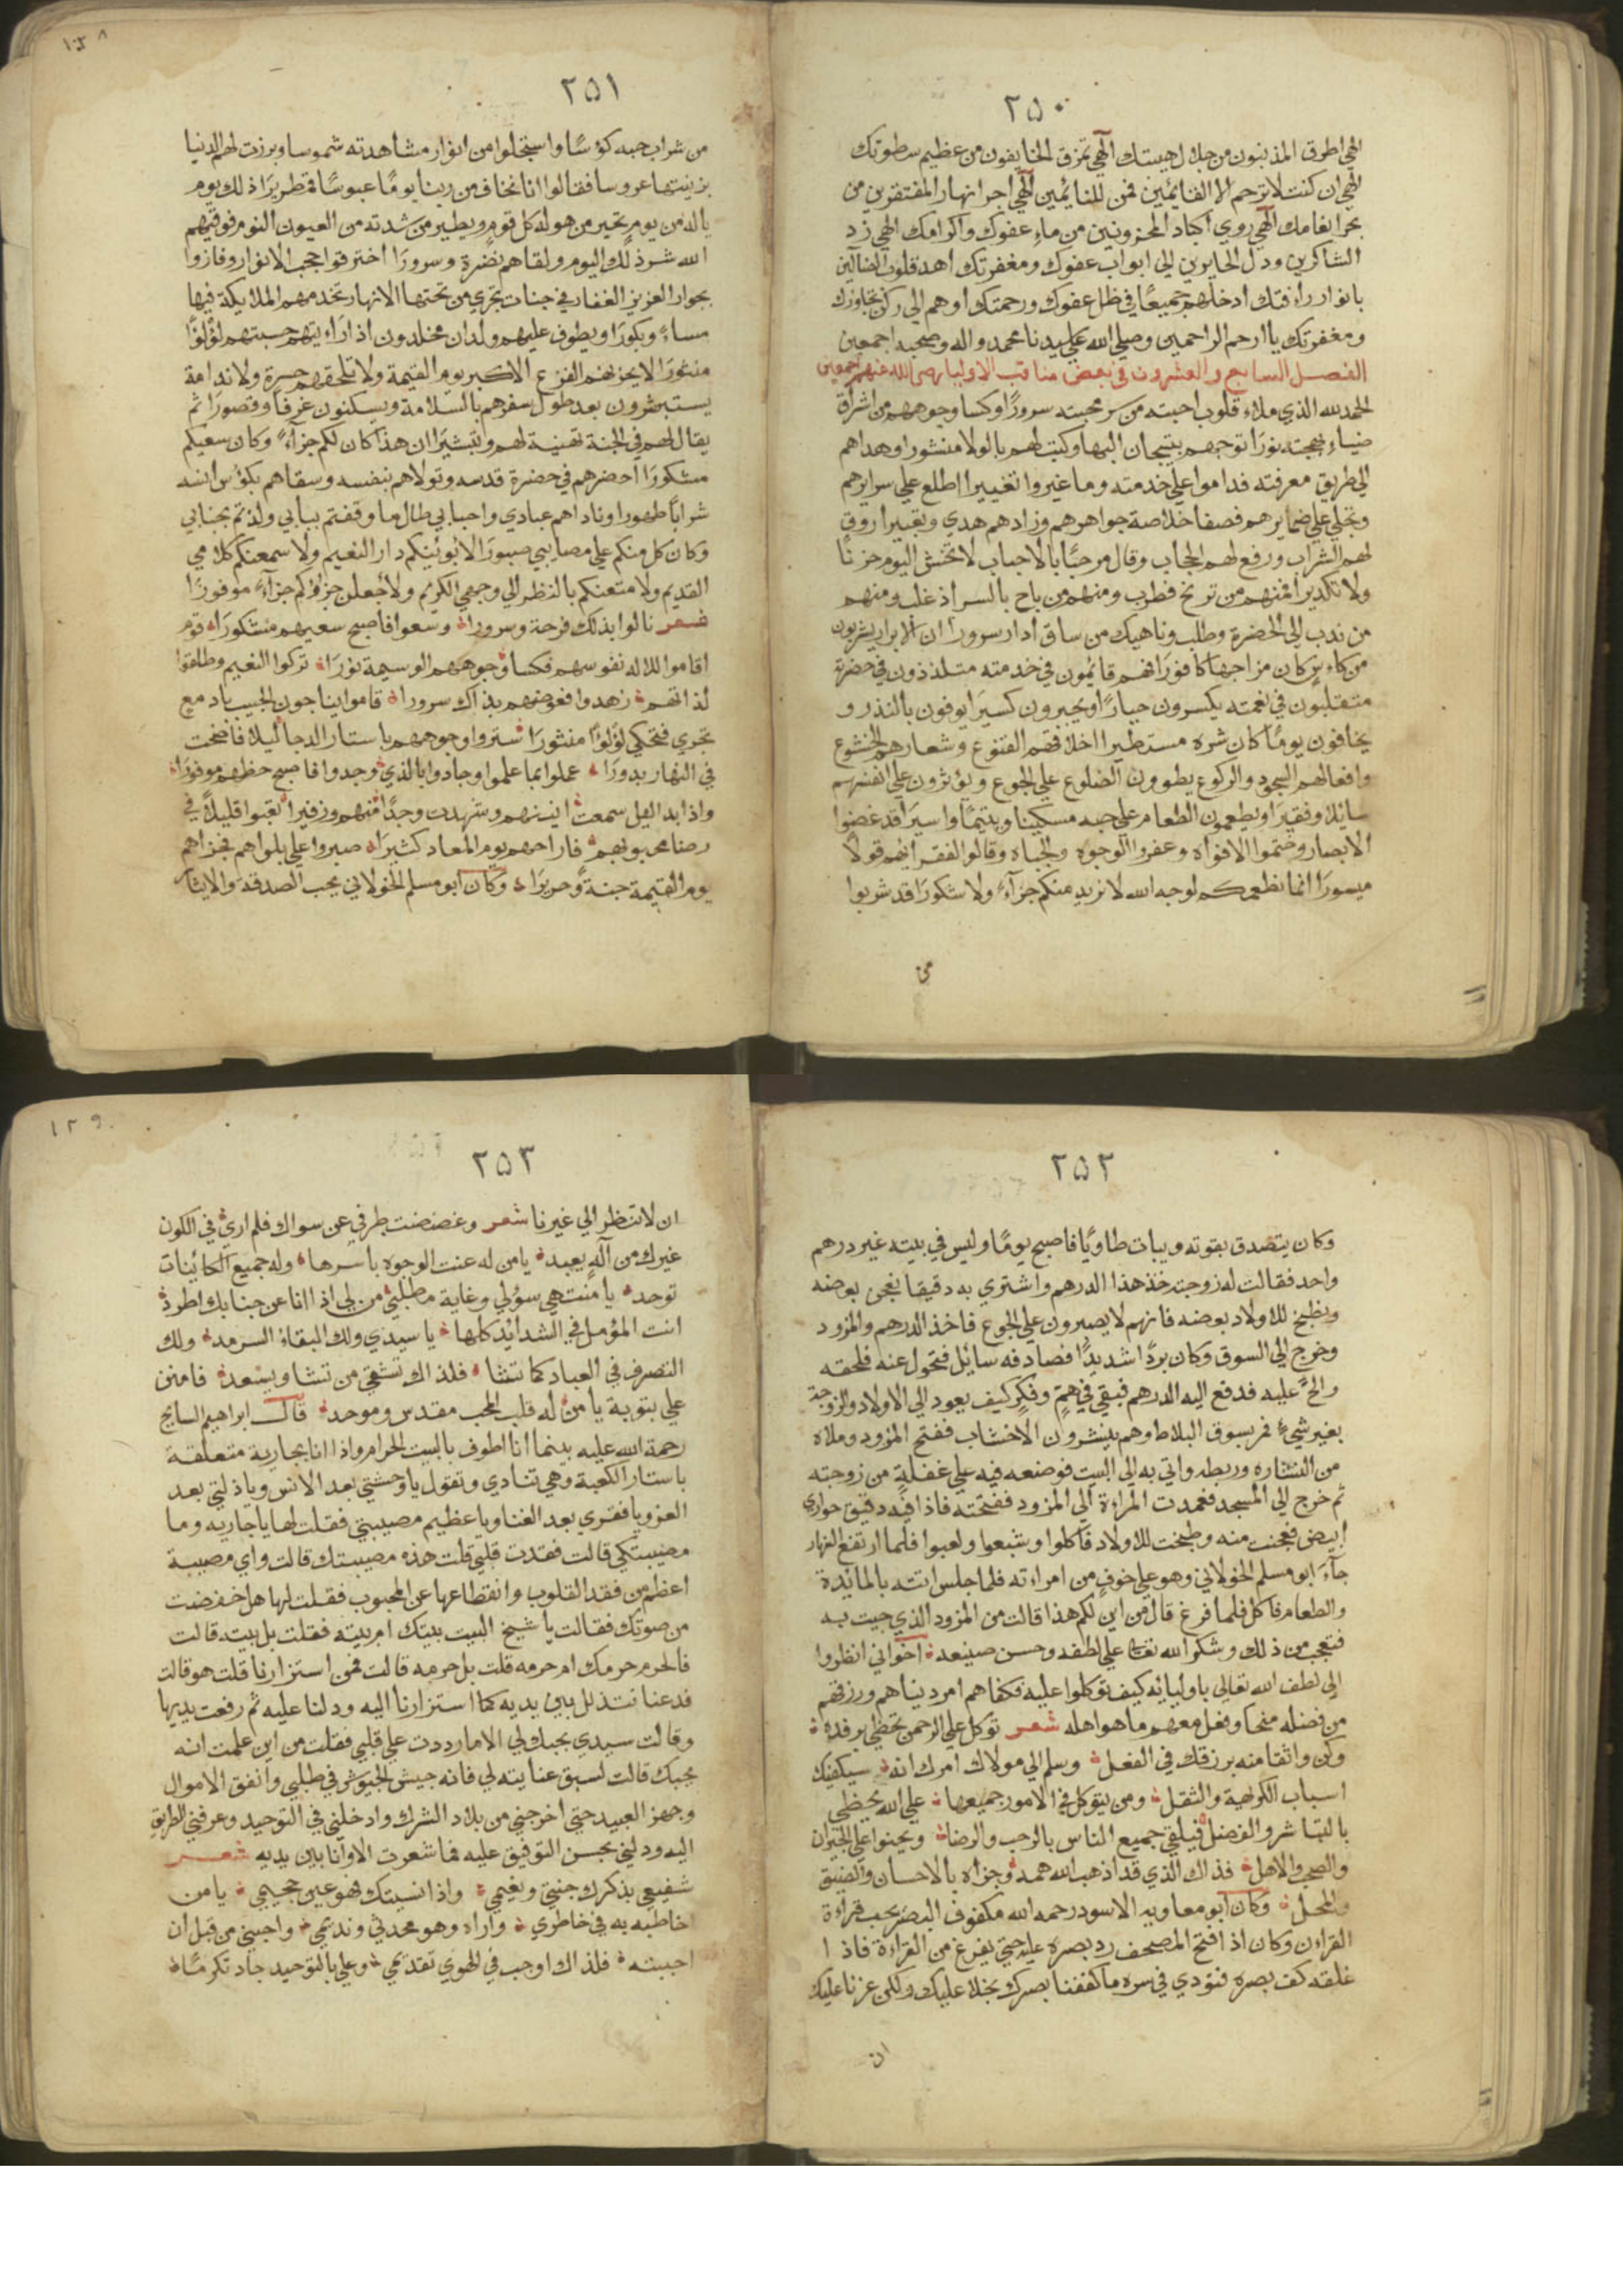 ٢٥٠
الهي اطرق المذنبون من جلال هيبتك الهي تمزق الخايفون من عظيم سطوتك
الهي ان كنت لا ترحم الا القايمين فمن للنايمين الهي اجر انهار المفتقرين من
بحر انعامك الهي روي اكباد المحزونين من ماء عفوك واكرامك الهي زد
الشاكرين ودل الحايرين الي ابواب عفوك ومغفرتك اهد قلوب الضالين
بانوار رأفتك ادخلهم جميعًا في ظل عفوك ورحمتك اوهم الي ركن تجاوزك
ومغفرتك يا ارحم الراحمين وصلي الله علي سيدنا محمد واله وصحبه اجمعين
الفصل السابع والعشرون في بعض مناقب الاوليا رضي الله عنهم اجمعين
الحمد لله الذي ملاء قلوب احبته من سر محبته سرورًا وكسا وجوههم من اشراق
ضياء بهجته نورًا توجهم بتيجان البها وكتب لهم بالولا منشورا وهداهم
الي طريق معرفته فداموا علي خدمته وما غيروا تغييرا اطلع علي سرايرهم
وتجلي علي ضمايرهم فصفا خلاصة جواهرهم وزادهم هدي وتبصيرا روق
لهم الشراب ورفع لهم الحجاب وقال مرحبًا بالاحباب لا تخش اليوم حزنًا
ولا تكديرا فمنهم من ترنح فطرب ومنهم من باح بالسر اذ غلب ومنهم
من ندب الي الحضرة وطلب وناهيك من ساق ادار سرورا ان الابرار يشربون
من كاس كان مزاجها كافورًا فهم قائمون في خدمته متلذذون في حضرته
متقلبون في نعمته يكسرون جبارًا ويجبرون كسيرًا يوفون بالنذر و
يخافون يومًا كان شره مستطيرا اخلاقهم القنوع وشعارهم الخشوع
وافعالهم السجود والركوع يطوون الضلوع علي الجوع ويؤثرون علي انفسهم
سائلا وفقيرًا ويطعمون الطعام علي حبه مسكينا ويتيمًا واسيرًا قد غضوا
الابصار وختموا الافواه وعفروا الوجوه والجباه وقالوا للفقراء لهم قولا
ميسورًا انما نطعمكم لوجه الله لا نريد منكم جزآء ولا شكورًا قد شربوا
من
٢٥١
من شراب حبه كؤسًا واستجلوا من انوار مشاهدته شموسا وبرزت لهم الدنيا
بزينتها عروسا فقالوا انا نخاف من ربنا يومًا عبوسًا قمطريرًا ذلك يوم
ياله من يوم تحير من هوله كل قوم ويطير من شدته من العيون النوم فوقيهم
الله شر ذلك اليوم ولقاهم نضرة وسرورًا اخترقوا حجب الانوار وفازوا
بجوار العزيز الغفار في جنات تجري من تحتها الانهار تخدمهم الملايكة فيها
مساءً وبكورًا ويطوف عليهم ولدان مخلدون اذا رأيتهم حسبتهم لؤلؤًا
منثورًا لا يحزنهم الفزع الاكبر يوم القيمة ولا تلحقهم حسرة ولا ندامة
يستبشرون بعد طول سفرهم بالسلامة ويسكنون غرفًا وقصورًا ثم
يقال لهم في الجنة تهنية لهم وتبشيرًا ان هذا كان لكم جزآءً وكان سعيكم
مشكورًا احضرهم في حضرة قدسه وتولاهم بنفسه وسقاهم بكؤس انسه
شرابًا طهورا وناداهم عبادي واحبابي طال ما وقفتم ببابي ولذتم بجنابي
وكان كل منكم علي مصايبي صبورًا لابوئينكم دار النعيم ولاسمعنكم كلامي
القديم ولامتعنكم بالنظر الي وجهي الكريم ولاجعلن جزاؤكم جزآءً موفورًا
شعر نالوا بذلك فرحة وسرورا وسعوا فاصبح سعيهم مشكورًا قوم
اقاموا للاله نفوسهم فكسا وجوههم الوسيمة نورًا تركوا النعيم وطلقوا
لذاتهم زهدوا فعوضهم بذاك سرورا قاموا يناجون الحبيب بادمع
تجري فتحكي لؤلؤًا منثورًا ستروا وجوههم باستار الدجا ليلا فاضحت
في النهار بدورًا عملوا بما علموا وجادوا بالذي وجدوا فاصبح حظهم موفورًا
واذا بدا الليل سمعت انينهم وشهدت وجدًا منهم وزفيرا تعبوا قليلًا في
رضا محبوبهم فاراحهم يوم المعاد كثيرًا صبروا علي بلواهم فجزاهم
يوم القيمة جنة وحريرًا وكان ابو مسلم الخولاني يحب الصدقة والايثار
٢٥٢
وكان يتصدق بقوته ويبات طاويًا فاصبح يومًا وليس في بيته غير درهم
واحد فقالت له زوجته خذ هذا الدرهم واشتري به دقيقا نعجن بعضه
ونطبخ للاولاد بعضه فانهم لا يصبرون علي الجوع فاخذ الدرهم والمزود
وخرج الي السوق وكان بردًا شديدًا فصادفه سائل فتحول عنه فلحقه
والح عليه فدفع اليه الدرهم فبقي في هم وفكر كيف يعود الي الاولاد والزوجة
بغير شيء فمر بسوق البلاط وهم ينشرون الاخشاب ففتح المزود وملاه
من النشاره وربطه واتي به الي البيت فوضعه فيه علي غفلة من زوجته
ثم خرج الي المسجد فعمدت المراءة الي المزود ففتحته فاذا فيه دقيق حواري
ابيض فعجنت منه وطبخت للاولاد فاكلوا وشبعوا ولعبوا فلما ارتفع النهار
جآء ابو مسلم الخولاني وهو علي خوف من امراءته فلما جلس اتته بالمائدة
والطعام فاكل فلما فرغ قال من اين لكم هذا قالت من المزود الذي جيت به
فتعجب من ذلك وشكر الله تعالي علي لطفه وحسن صنيعه اخواني انظروا
الي لطف الله تعالي باوليائه كيف توكلوا عليه فكفاهم امر دنياهم ورزقهم
من فضله منحًا وفعل معهم ما هو اهله شعر توكل علي الرحمن تحظي برفده
وكن واثقا منه برزقك في الفعل وسلم الي مولاك امرك انه سيكفيك
اسباب الكراهية والثقل ومن يتوكل في الامور جميعها علي الله يحظي
بالتباشر والفضل فيلقي جميع الناس بالرحب والرضا ويحنوا علي الجيران
والصحب والاهل فذاك الذي قد اذهب الله همه وجزاه بالاحسان والضيق
والمحل وكان ابو معاويه الاسود رحمه الله مكفوف البصر يحب قراءة
القراءن وكان اذ افتح المصحف رد بصره عليه حتي يفرغ من القراءة فاذا
غلقه كف بصره فنودي في سره ما كففنا بصرك بخلا عليك ولكن غرنا عليك
ان
٢٥٣
ان لا تنظر الي غيرنا شعر وغضضت طرفي عن سواك فلم اري في الكون
غيرك من آله يعبد يا من له عنت الوجوه باسرها وله جميع الكائنات
توحد يا منتهي سؤلي وغاية مطلبي من لي اذا انا عن جنابك اطرد
انت المؤمل في الشدائد كلها يا سيدي ولك البقاء السرمد ولك
التصرف في العباد كما تشا فلذاك تشقي من تشا ويسعد فامنن
علي بتوبة يا من له قلب المحب مقدس وموحد قال ابراهيم السايح
رحمة الله عليه بينما انا اطوف بالبيت الحرام واذا انا بجارية متعلقة
باستار الكعبة وهي تنادي وتقول يا وحشتي بعد الانس ويا ذلتي بعد
العز ويا فقري بعد الغنا ويا عظيم مصيبتي فقلت لها يا جاريه وما
مصيبتكي قالت فقدت قلبي قلت هذه مصيبتك قالت واي مصيبة
اعظم من فقد القلوب وانقطاعها عن المحبوب فقلت لها هل خفضت
من صوتك فقالت يا شيخ البيت بيتك ام بيته فقلت بل بيته قالت
فالحرم حرمك ام حرمه قلت بل حرمه قالت فمن استزارنا قلت هو قالت
فدعنا نتذلل بين يديه كما استزارنا اليه ودلنا عليه ثم رفعت يديها
وقالت سيدي بحبك لي الا ما رددت علي قلبي فقلت من اين علمت انه
يحبك قالت لسبق عنايته لي فانه جيش الجيوش في طلبي وانفق الاموال
وجهز العبيد حتي اخرجني من بلاد الشرك وادخلني في التوحيد وعرفني الطريق
اليه ودلني بحسن التوفيق عليه فما شعرت الا وانا بين يديه شعر
شفيعي بذكرك جنتي ونعيمي واذا نسيتك فهو عين جحيمي يا من
اخاطبه به في خاطري واراه وهو محدثي ونديمي واحبني من قبل ان
احببته فلذاك اوجب في الهوي تقديمي وعلي بالتوحيد جاد تكرمًا